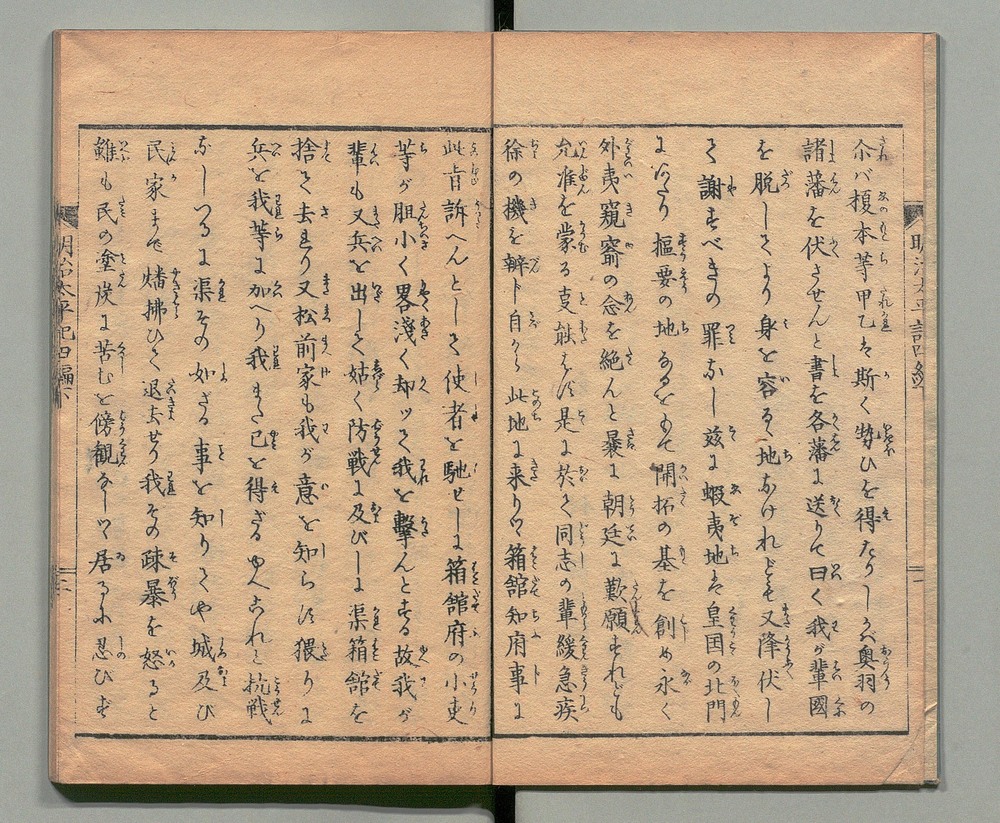 尓バ榎本等甲乙と斯く勢ひを得たりしが奥羽の
諸藩を伏させんと書を各藩に送りて曰く我が輩國
を脱してより身を容るゝ地なけれども又降伏し
て謝すべきの罪なし茲に蝦夷地は皇国の北門
にて樞要の地なるをもて開拓の基を創め永く
外夷窺窬の念を絶んと曩に朝廷に歎願すれども
允准を蒙る事能はず是に於て同志の輩緩急疾
徐の機を辨ト自から此地に来りて箱舘知府事に
此旨訴へんとして使者を馳せしに箱舘府の小吏
等が胆小く畧淺く却ッて我を擊んとする故我が
輩も又兵を出して姑く防戦に及びしに渠箱舘を
捨て去たり又松前家も我が意を知らず猥りに
兵を我等に加へり我また已を得ざるゆへこれと抗戦
なしつるに渠その如ざる事を知りてや城及び
民家まで燔拂ひて退去せり我その疎暴を怒ると
雖も民の塗炭に苦むを傍観なしつゝ居るに忍びず
明治太平記四編下